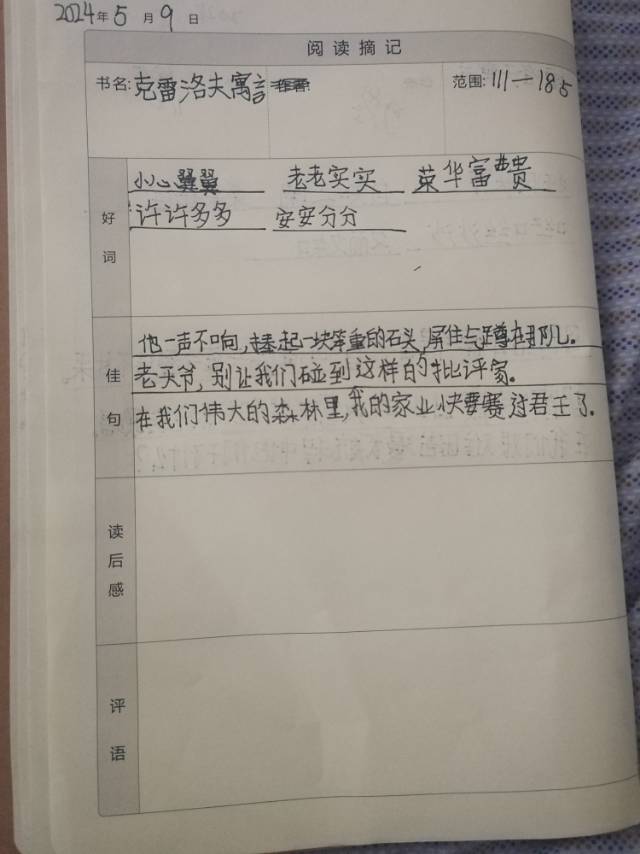 2024年5月9日
阅读摘记
书名:克雷洛夫寓言 范围:111—185
好词
小心翼翼 老老实实 荣华富贵
许许多多 安安分分
佳句
他一声不响,捧起一块笨重的石头,屏住气蹲在那儿.
老天爷,别让我们碰到这样的批评家.
在我们伟大的森林里,我的家业快要赛过君王了.
读后感
评语